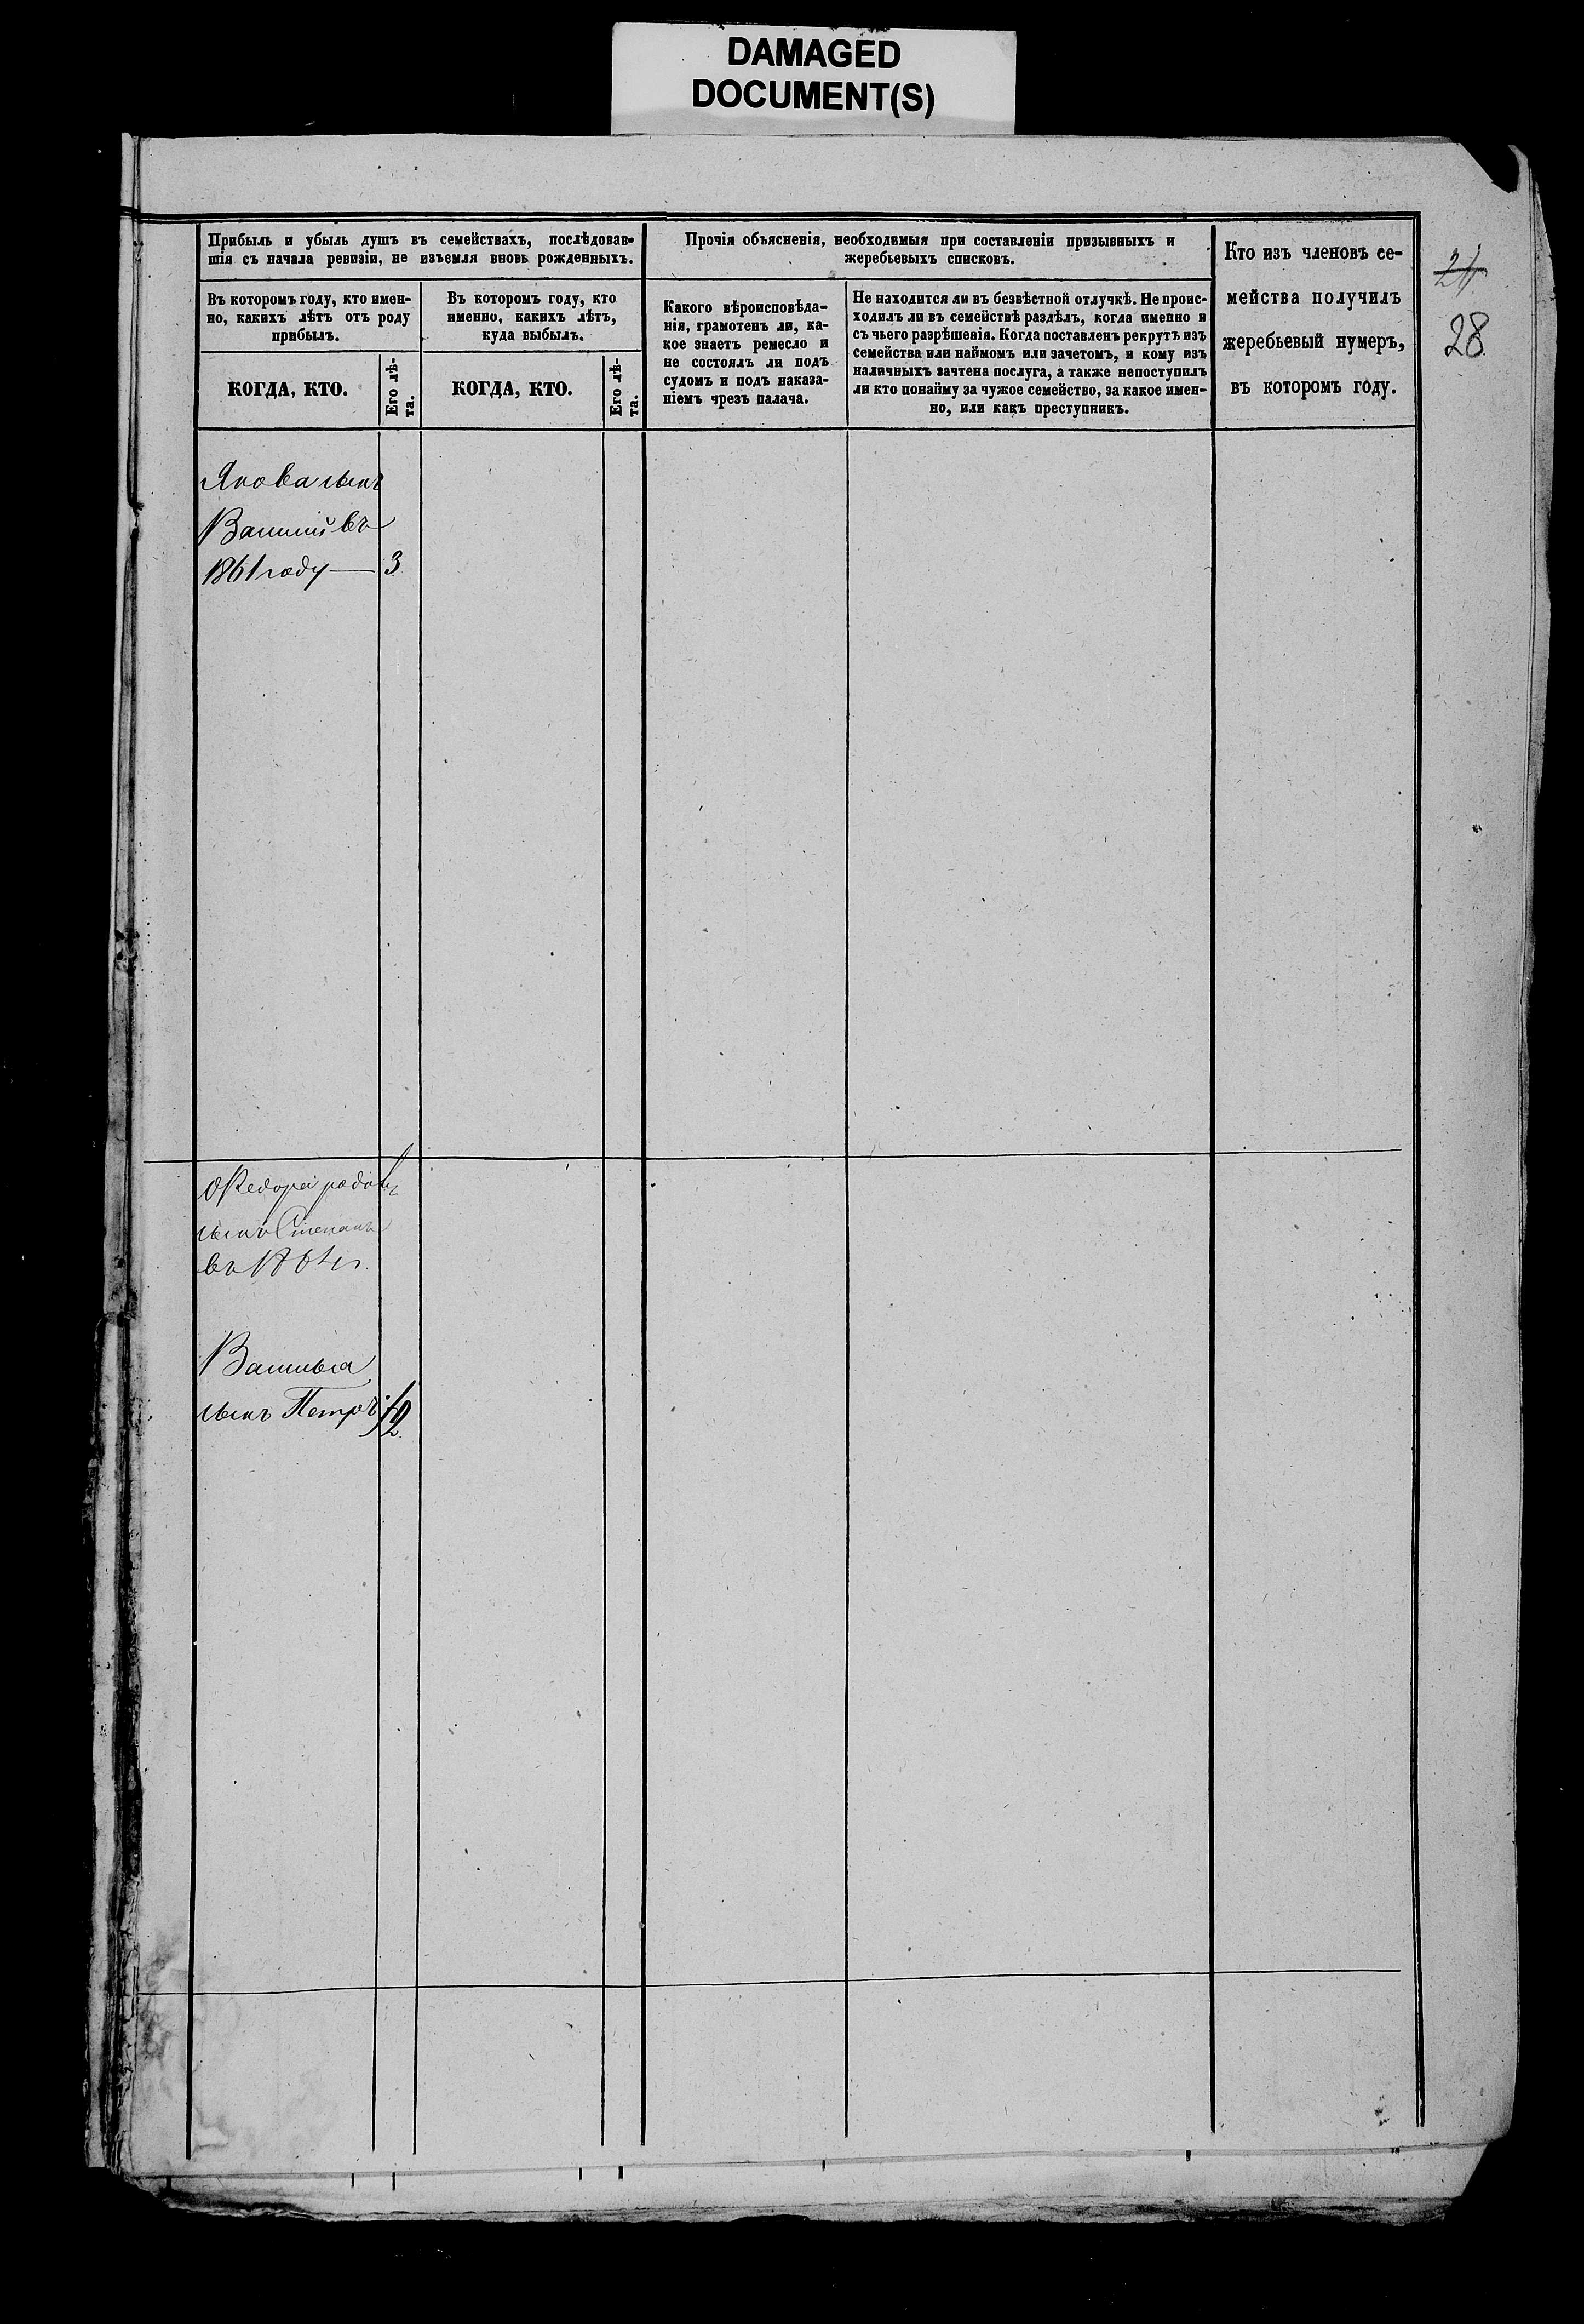 DAMAGED
DOCUMENT(S)
Прибыль и убыль душъ въ семействахъ, послѣдовав-
шія съ начала ревизіи, не изъемля вновь рожденныхъ.
Прочія объясненія, необходимыя при составленіи призывныхъ и
жеребьевыхъ списковъ.
Кто изъ членовъ се-
мейства получилъ
жеребьевый нумеръ,
въ которомъ году.
21
28
Въ которомъ году, кто имен-
но, какихъ лѣтъ отъ роду
прибылъ.
Въ которомъ году, кто
именно, какихъ лѣтъ,
куда выбылъ.
Какого вѣроисповѣда-
нія, грамотенъ ли, ка-
кое знаетъ ремесло и
не состоялъ ли подъ
судомъ и подъ наказа-
ніемъ чрезъ палача.
Не находится ли въ безвѣстной отлучкѣ. Не проис-
ходилъ ли въ семействѣ раздѣлъ, когда именно и
съ чьего разрѣшенія. Когда поставленъ рекрутъ изъ
семейства или наймомъ или зачетомъ, и кому изъ
наличныхъ зачтена послуга, а также непоступилъ
ли кто понайму за чужое семейство, за какое имен-
но, или какъ преступникъ.
КОГДА, КТО.
Его лѣ-
та.
КОГДА, КТО.
Его лѣ-
та.
Якова сынъ
Василій въ
1861 году — 3
Федора
сынъ Степанъ
въ 1864 г.
Василья
сынъ Петръ 1/2